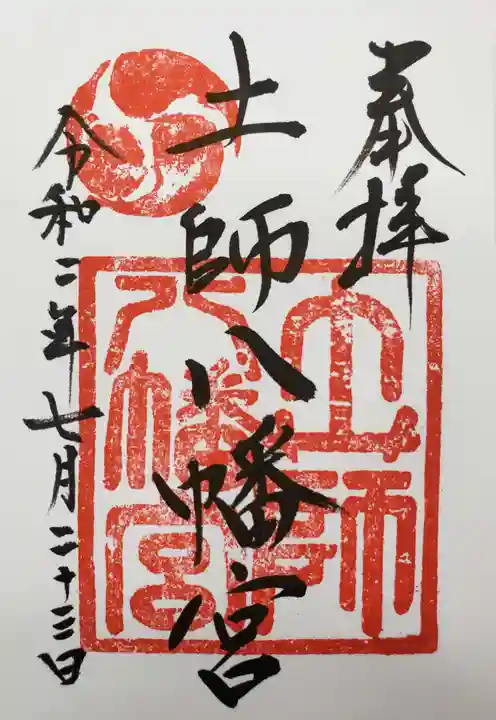 奉拝
土師八幡宮
令和二年七月二十三日
土師
八幡宮